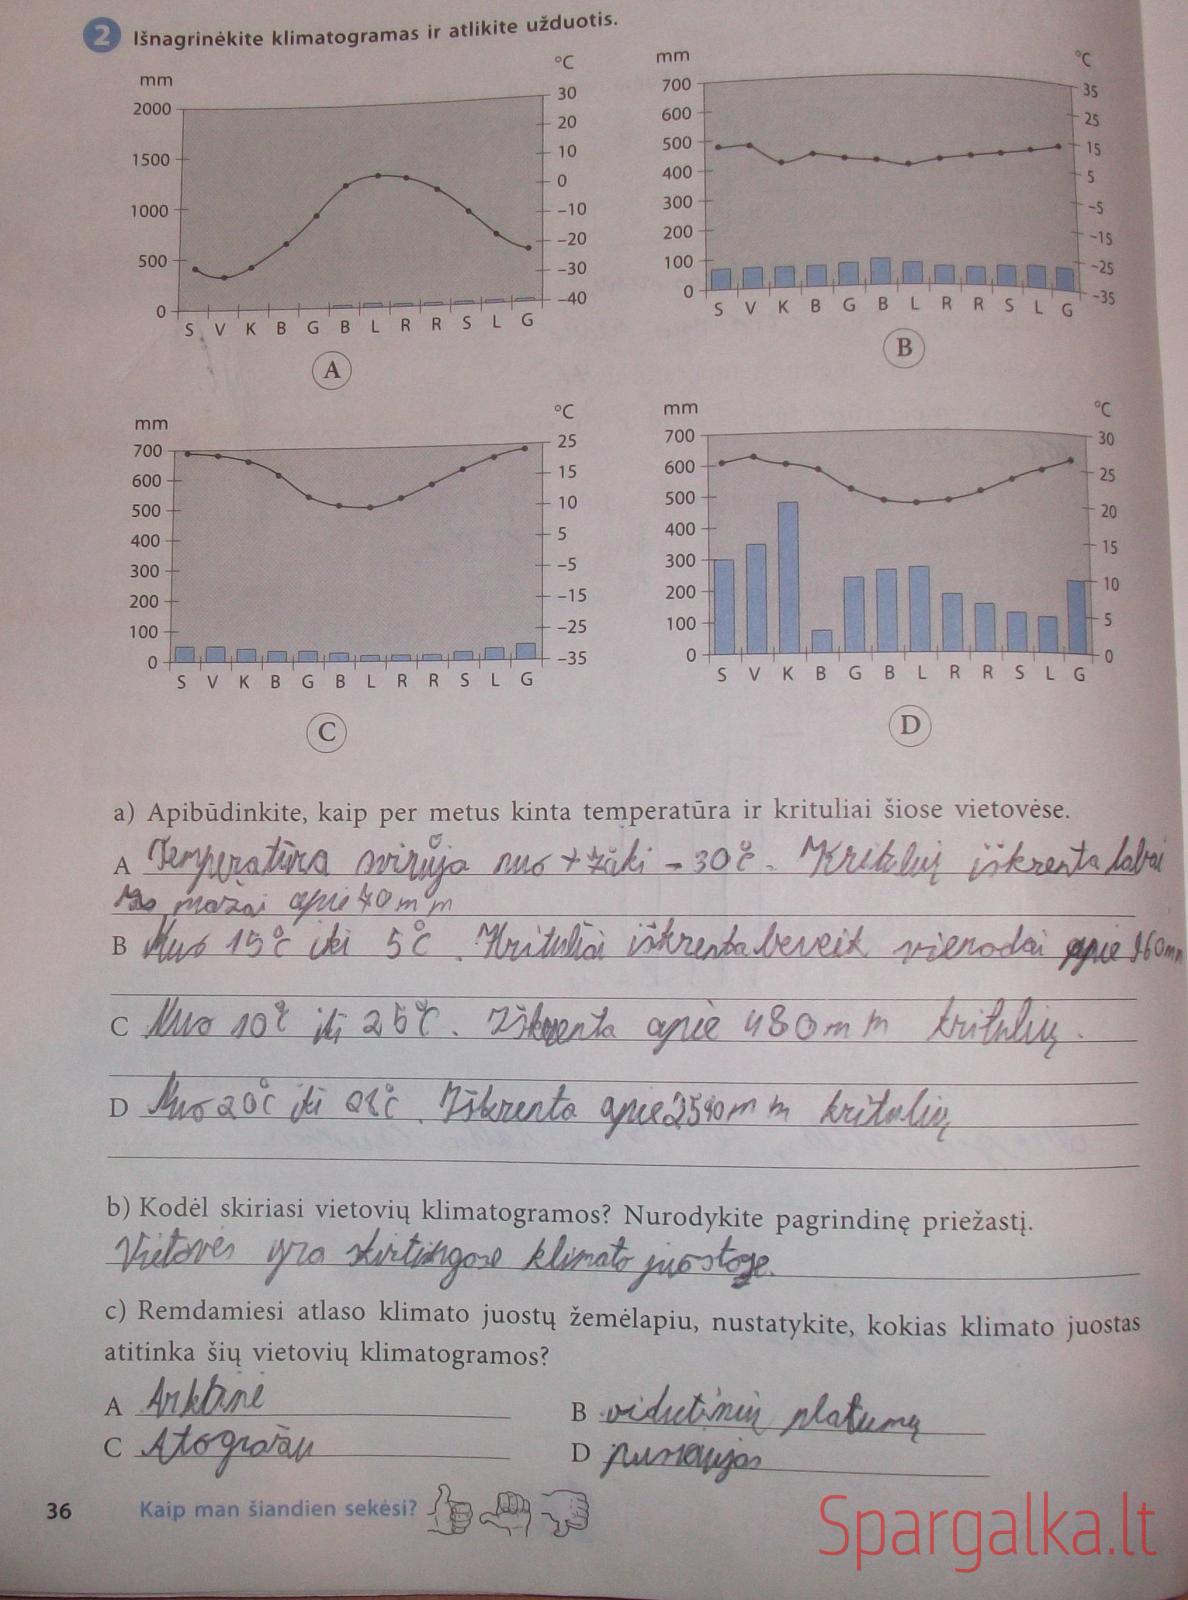 2 Išnagrinėkite klimatogramas ir atlikite užduotis.
mm °C
2000 1500 1000 500 0
30 20 10 0 –10 –20 –30 –40
S V K B G B L R R S L G
A
mm °C
700 600 500 400 300 200 100 0
35 25 15 5 –5 –15 –25 –35
S V K B G B L R R S L G
B
mm °C
700 600 500 400 300 200 100 0
25 15 10 5 –5 –15 –25 –35
S V K B G B L R R S L G
C
mm °C
700 600 500 400 300 200 100 0
30 25 20 15 10 5 0
S V K B G B L R R S L G
D
a) Apibūdinkite, kaip per metus kinta temperatūra ir krituliai šiose vietovėse.
A Temperatūra nuo – 30°C. Kritulių iškrenta labai
mažai apie 40 mm
B Nuo 15°C iki 5°C. Krituliai iškrenta beveik vienodai apie 960mm
C Nuo 10°C iki 25°C. Iškrenta apie 480 mm kritulių.
D Nuo 20°C iki °C. Iškrenta apie mm kritulių
b) Kodėl skiriasi vietovių klimatogramos? Nurodykite pagrindinę priežastį.
Vietovės yra skirtingose klimato juostose.
c) Remdamiesi atlaso klimato juostų žemėlapiu, nustatykite, kokias klimato juostas
atitinka šių vietovių klimatogramos?
A Arktinė B vidutinių platumų
C Atogrąžų D
36 Kaip man šiandien sekėsi?
Spargalka.lt